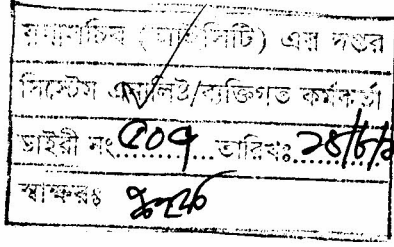 যুগ্মসচিব (আইসিটি) এর দপ্তর
সিস্টেম এনালিষ্ট/ব্যক্তিগত কর্মকর্তা
ডাইরী নং ৫০৭ তারিখঃ
স্বাক্ষরঃ